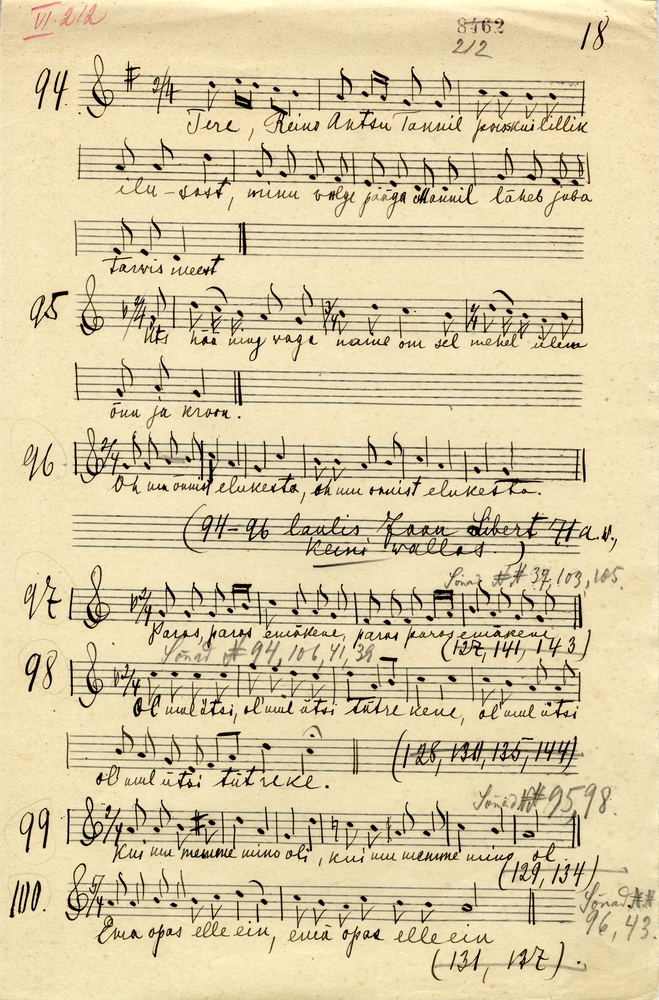 VI 212
8462
212
18
94.
Tere, Keino Antsu Tannil poisskui lillik
ilu-sast, minu valge pääga Mannil läheb juba
Tarvis meest
95
Üts hää ning vaga naine om sel mehel ülem
õnn ja kroon.
96
Oh mu õnnist elukesta, oh mu õnnist elukesta.
(94-96 laulis Jaan Libert 71 a. v.,
Keini vallas.)
Sõnad ## 37, 103, 105.
97
Paras, paras emäkene, paras paras emäkene
(127, 141, 143)
Sõnad # 94, 106, 41, 39
98
Ol' mul ütsi, ol' mul ütsi tütrekene, ol' mul ütsi
ol' mul ütsi tütreke.
(128, 130, 135, 144)
Sõnad ## 95, 98.
99
Kui mu memme minno oli, kui mu memme minno ol.
(129, 134)
100.
Sõnad ##
96, 43.
Ema opas elle ein, emä opas elle ein
(131, 137).